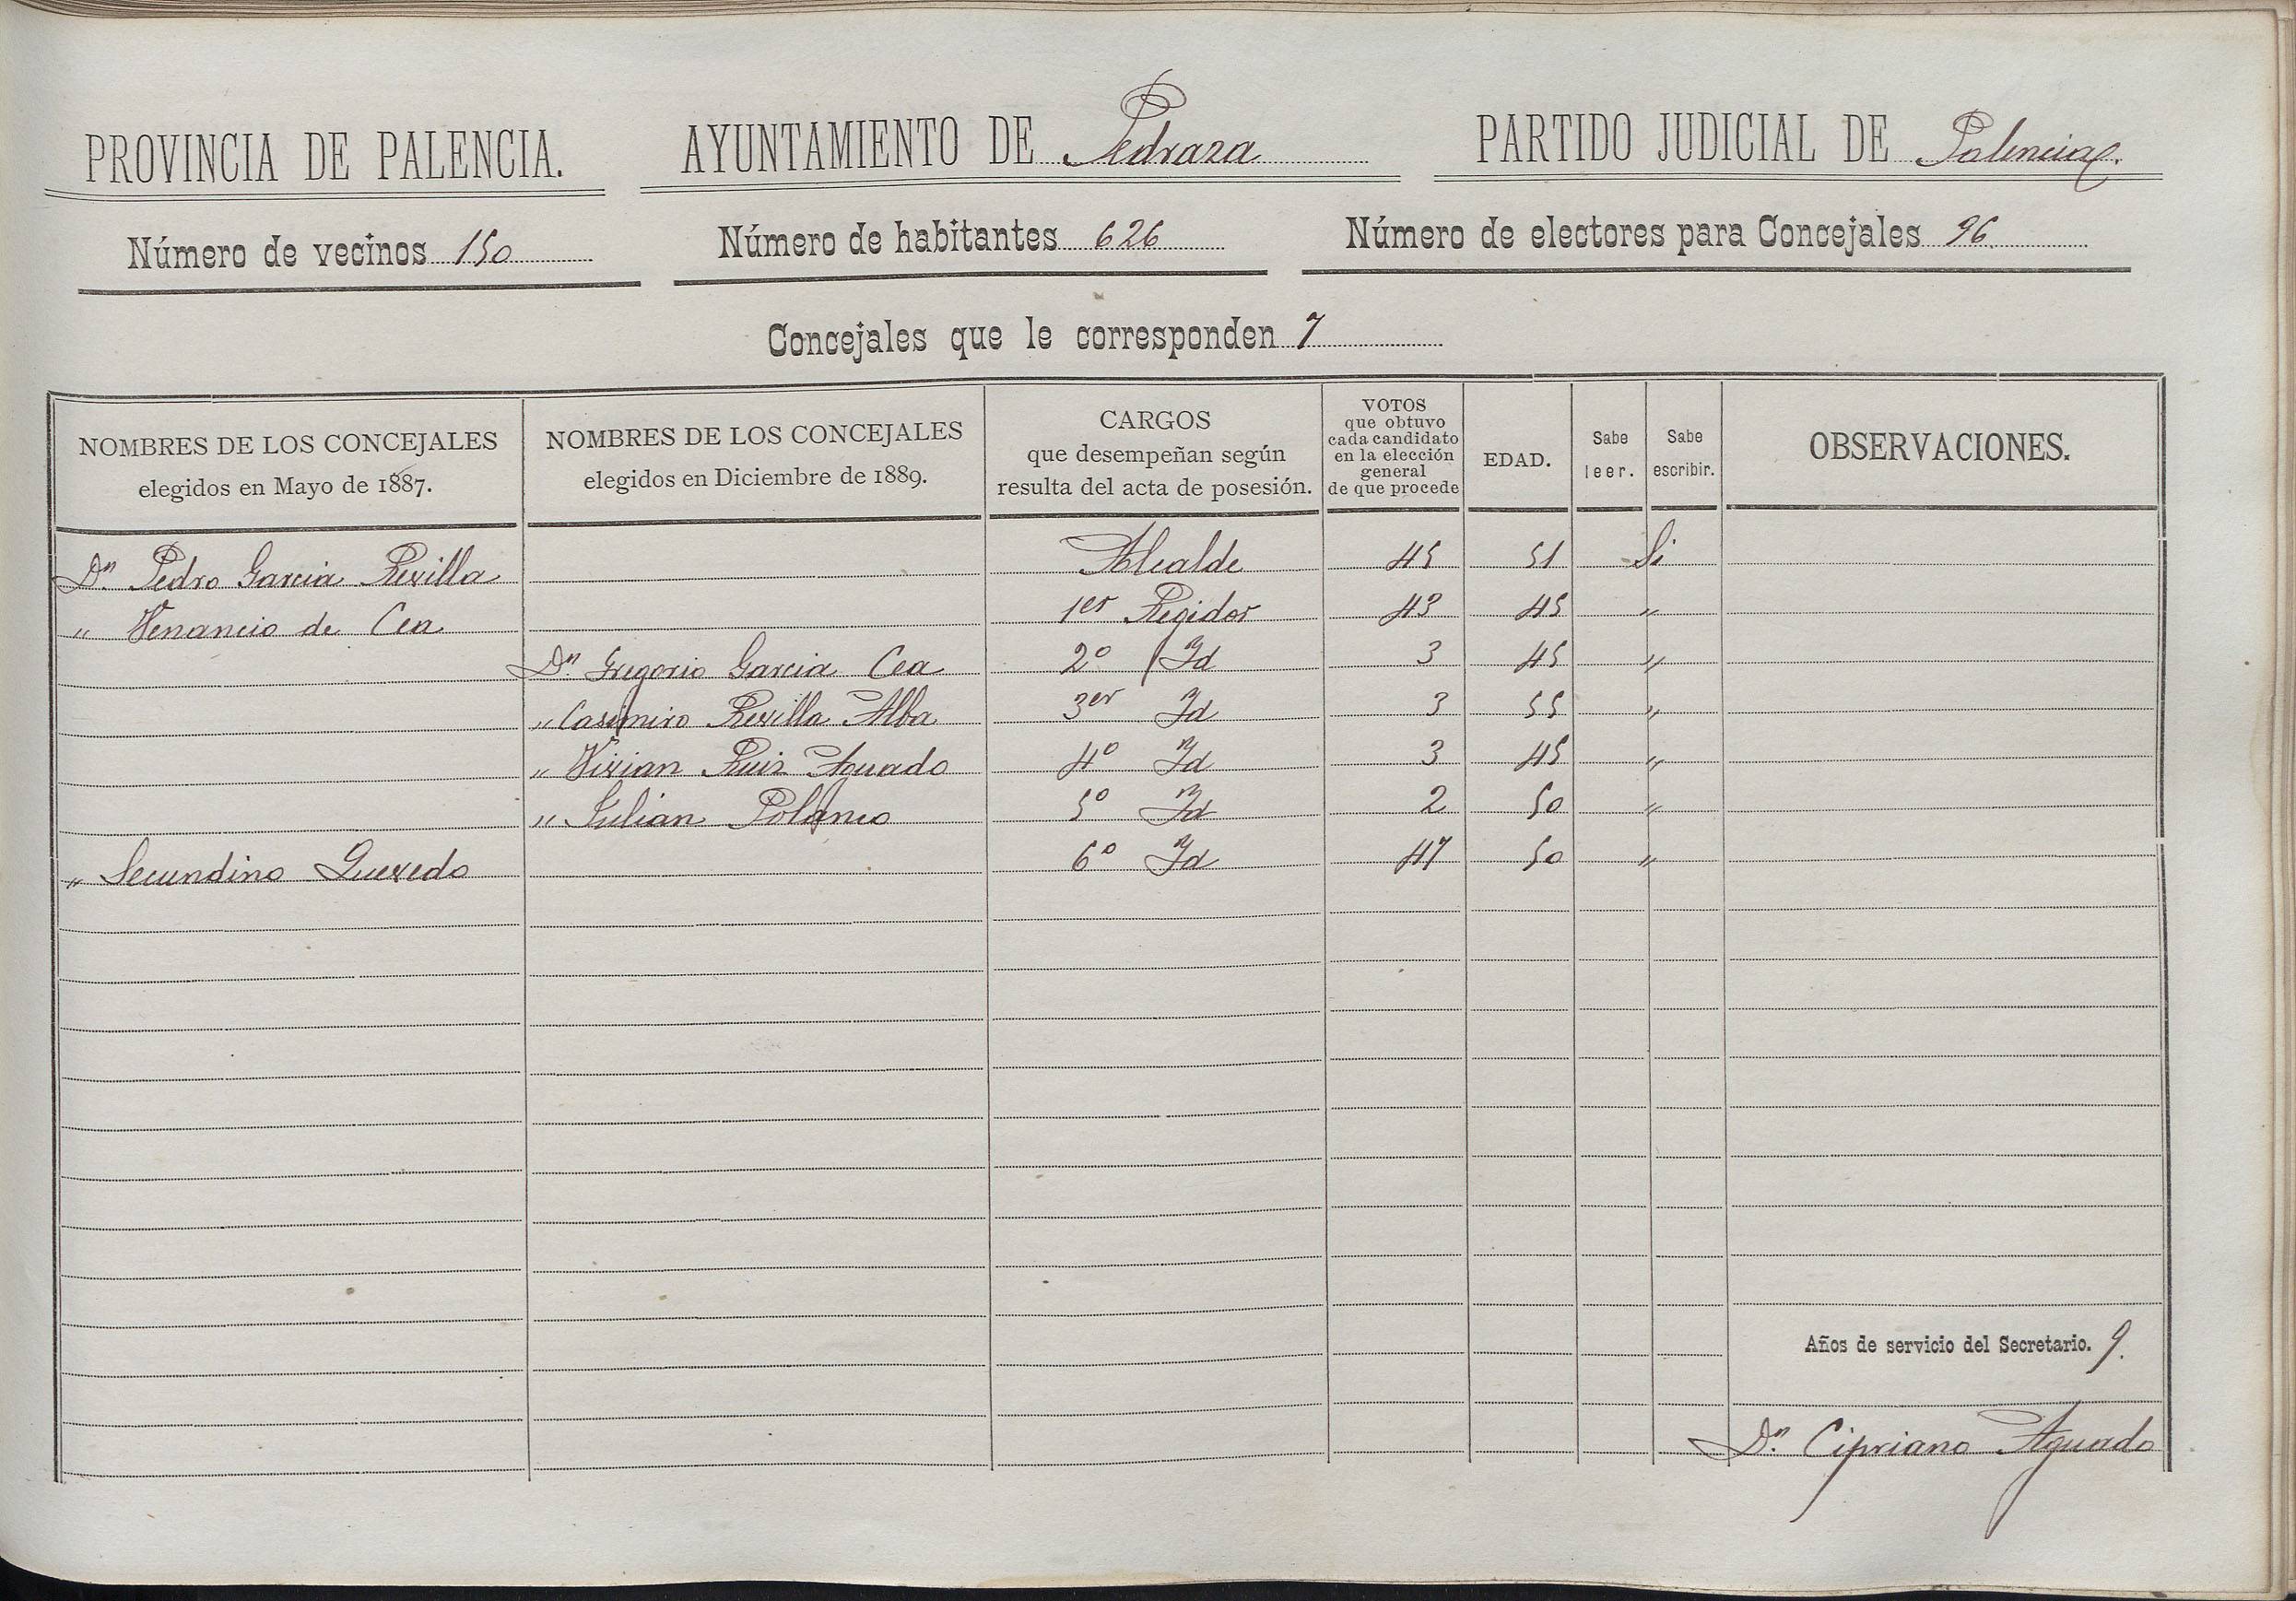 PROVINCIA DE PALENCIA. AYUNTAMIENTO DE Pedraza PARTIDO JUDICIAL DE Palencia.
Número de vecinos 150 Número de habitantes 626 Número de electores para Concejales 96.
Concejales que le corresponden 7
NOMBRES DE LOS CONCEJALES
elegidos en Mayo de 1887.
NOMBRES DE LOS CONCEJALES
elegidos en Diciembre de 1889.
CARGOS
que desempeñan según
resulta del acta de posesión.
VOTOS
que obtuvo
cada candidato
en la elección
general
de que procede
EDAD.
Sabe
leer.
Sabe
escribir.
OBSERVACIONES.
Dn. Pedro Garcia Revilla Alcalde 45 51 Si
" Venancio de Cea 1er Regidor 43 45 "
Dn. Gregorio Garcia Cea 2º Id 3 45 "
" Casimiro Revilla Alba 3er Id 3 55 "
" Vivian Ruiz Aguado 4º Id 3 45 "
" Julian Polanco 5º Id 2 50 "
" Secundino Quevedo 6º Id 47 50 "
Años de servicio del Secretario. 9.
Dn. Cipriano Aguado